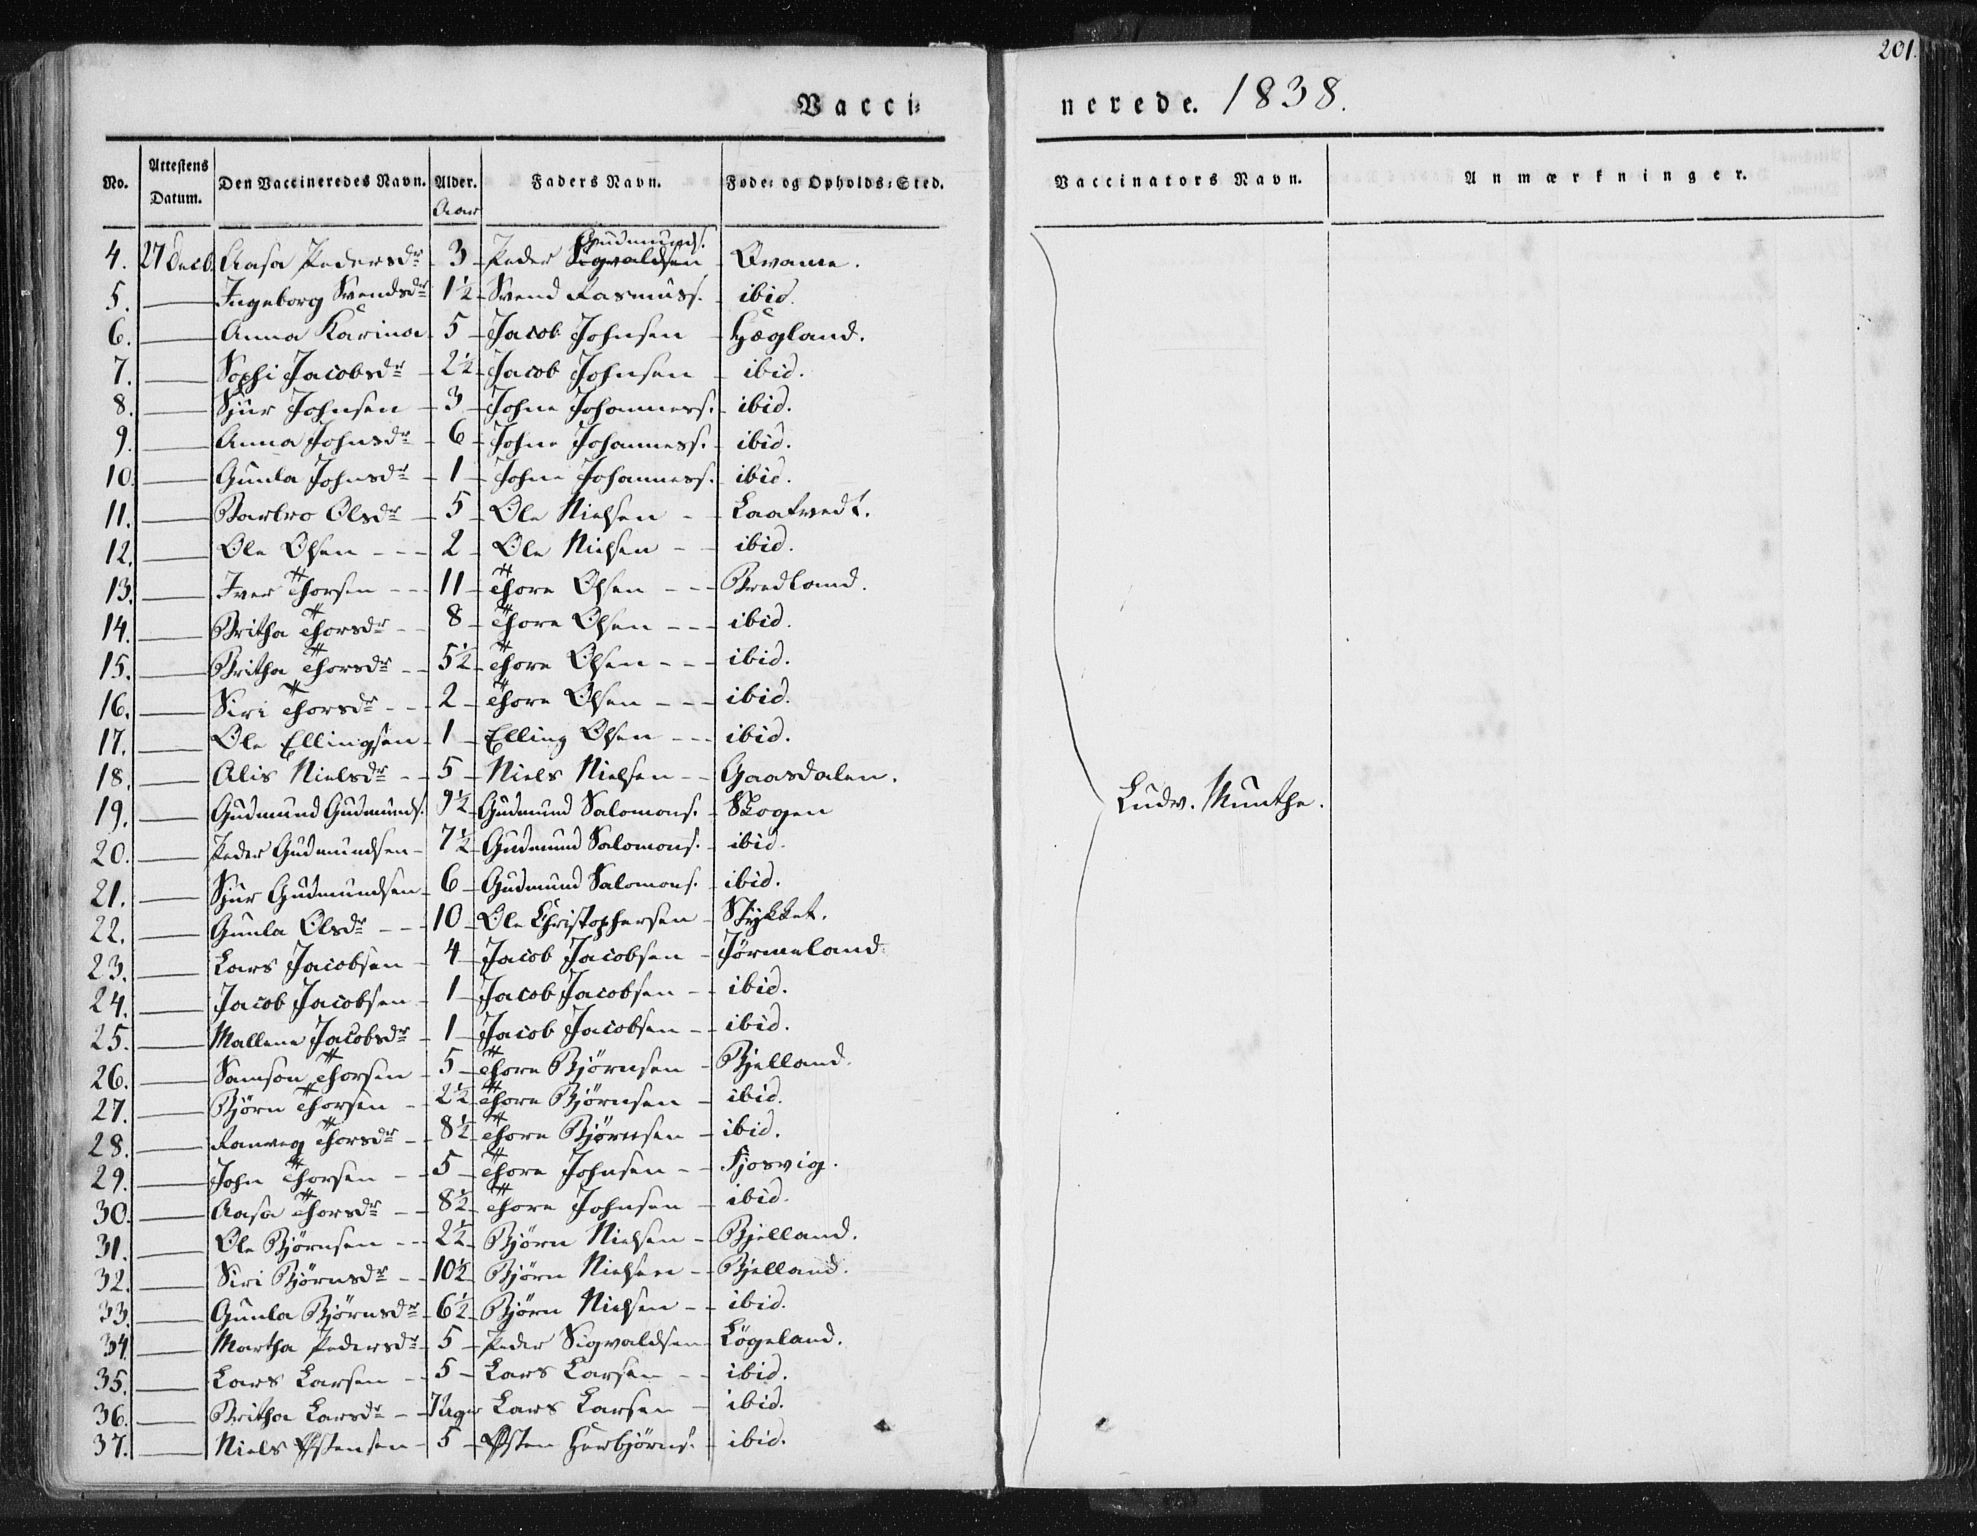 201.
Vacci- nerede. 1838.
No. Attestens Datum. Den Vaccineredes Navn. Alder. Faders Navn. Føde- og Opholds-Sted. Vaccinators Navn. Anmærkninger.
Aar
Gudmunds.
4. 27 Decb. Aasa Pedersdr - 3 - Peder Sigvaldsen - Qvame.
5. — Ingeborg Svendsdr 1½ - Svend Rasmuss. - ibid.
6. — Anna Karina - 5 - Jacob Johnsen - Hægland.
7. — Sophi Jacobsdr - 2½ - Jacob Johnsen - ibid.
8. — Sjur Johnsen - 3 - John Johanness. - ibid.
9. — Anna Johnsdr - 6 - John Johanness. - ibid.
10. — Gunla Johnsdr - 1 - John Johanness. - ibid.
11. — Barbro Olsdr - 5 - Ole Nielsen - Laatvedt.
12. — Ole Olsen - - - 2 - Ole Nielsen - - ibid.
13. — Iver Thorsen - - - 11 - Thore Olsen - - - Bredland.
14. — Britha Thorsdr - - 8 - Thore Olsen - - - ibid.
15. — Britha Thorsdr - - 5½ - Thore Olsen - - - ibid.
16. — Siri Thorsdr - - 2 - Thore Olsen - - - ibid.
17. — Ole Ellingsen - 1 - Elling Olsen - - - ibid.
18. — Alis Nielsdr - - 5 - Niels Nielsen - - Gaasdalen.
19. — Gudmund Gudmunds. 9½ Gudmund Salomons. - Skogen
20. — Peder Gudmundsen - 7½ Gudmund Salomons. - ibid.
21. — Sjur Gudmundsen - 6 - Gudmund Salomons. - ibid.
22. — Gunla Olsdr - - - 10 - Ole Christophersen - Stykket.
23. — Lars Jacobsen - 4 - Jacob Jacobsen - Jørmeland
24. — Jacob Jacobsen - 1 - Jacob Jacobsen - - ibid.
25. — Mallene Jacobsdr - 1 - Jacob Jacobsen - - ibid.
26. — Samson Thorsen - 5 - Thore Bjørnsen - Bjelland.
27. — Bjørn Thorsen - 2½ Thore Bjørnsen - ibid.
28. — Ranveg Thorsdr - - 8½ Thore Bjørnsen - ibid.
29. — John Thorsen - - 5 - Thore Johnsen - - Fjosvig.
30. — Aasa Thorsdr - - 8½ - Thore Johnsen - ibid.
31. — Ole Bjørnsen - - - 2½ Bjørn Nielsen - Bjelland.
32. — Siri Bjørnsdr - - 10½ Bjørn Nielsen - - Bjelland.
33. — Gunla Bjørnsdr - 6½ Bjørn Nielsen - - ibid.
34. — Martha Pedersdr - 5 - Peder Sigvaldsen Løgeland.
35. — Lars Larsen - - 5 - Lars Larsen - - ibid.
36. — Britha Larsdr - - Lars Larsen - ibid.
37. — Niels Østensen - 5 - Østen Herbjørns. - ibid.
Ludv. Munthe.